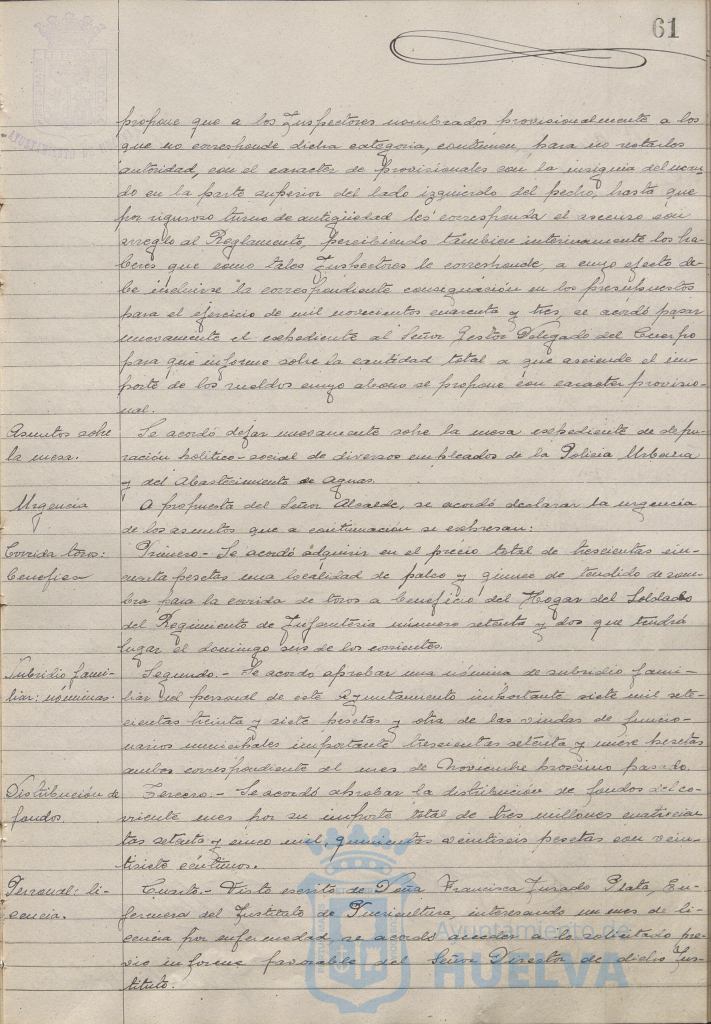 61
propone que a los Inspectores nombrados provisionalmente a los
que no corresponde dicha categoria, continuen, para no restarles
autoridad, con el caracter de provisionales con la insignia del man-
do en la parte superior del lado izquierdo del pecho, hasta que
por riguroso turno de antigüedad les corresponda el ascenso con
arreglo al Reglamento, percibiendo tambien interinamente los ha-
beres que como tales Inspectores le corresponde, a cuyo efecto de-
be incluirse la correspondiente consignación en los presupuestos
para el ejercicio de mil novecientos cuarenta y tres, se acordó pasar
nuevamente el expediente al Señor Gestor Delegado del Cuerpo
para que informe sobre la cantidad total a que asciende el im-
porte de los sueldos cuyo abono se propone con caracter provisio-
nal.
Asuntos sobre
la mesa.
Se acordó dejar nuevamente sobre la mesa expediente de depu-
ración politico-social de diversos empleados de la Policia Urbana
y del Abastecimiento de Aguas.
Urgencia
A propuesta del Señor Alcalde, se acordó declarar la urgencia
de los asuntos que a continuación se expresan:
Corrida toros:
benefica
Primero.- Se acordó adquirir en el precio total de trescientas cin-
cuenta pesetas una localidad de palco y quince de tendido de som-
bra para la corrida de toros a beneficio del Hogar del Soldado
del Regimiento de Infanteria número setenta y dos que tendrá
lugar el domingo seis de los corrientes.
Subsidio fami-
liar: nóminas.
Segundo.- Se acordo aprobar una nómina de subsidio fami-
liar del personal de este Ayuntamiento importante siete mil sete-
cientas treinta y siete pesetas y otra de las viudas de funcio-
narios municipales importante trescientas setenta y nueve pesetas
ambos correspondiente al mes de Noviembre proximo pasado.
Distribución de
fondos.
Tercero.- Se acordó aprobar la distribución de fondos del co-
rriente mes por su importe total de tres millones cuatrocien-
tas setenta y cinco mil, quinientas veintiseis pesetas con vein-
tisiete céntimos.
Personal: li-
cencia.
Cuarto.- Visto escrito de Doña Francisca Jurado Plata, En-
fermera del Instituto de Puericultura, interesando un mes de li-
cencia por enfermedad, se acordó acceder a lo solicitado pre-
vio informe favorable del Señor Director de dicho Ins-
tituto.
Ayuntamiento de
HUELVA